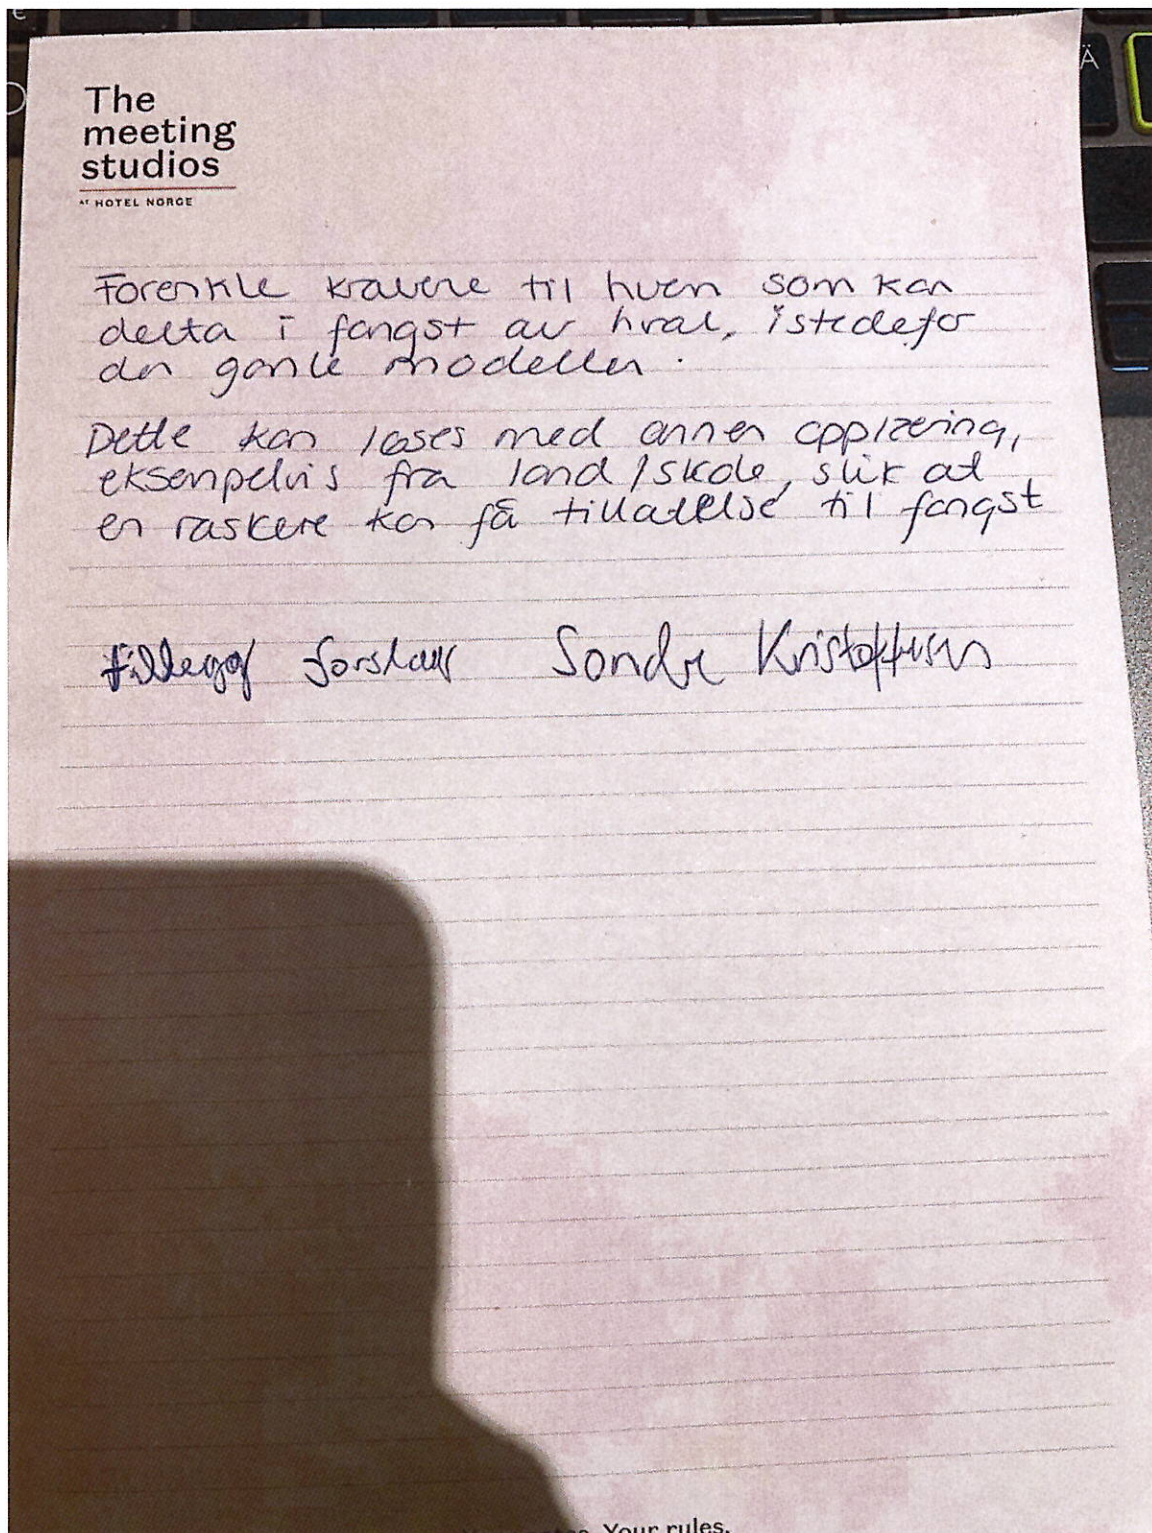 The
meeting
studios
AT HOTEL NORGE
Forenkle kravene til hvem som kan
delta i fangst av hval, istedefor
den gamle modellen.
Dette kan løses med annen opplæring,
eksempelvis fra land/skole, slik at
en raskere kan få tillatelse til fangst
tillegg forslag Sondre Kristoffersen
Your rules.